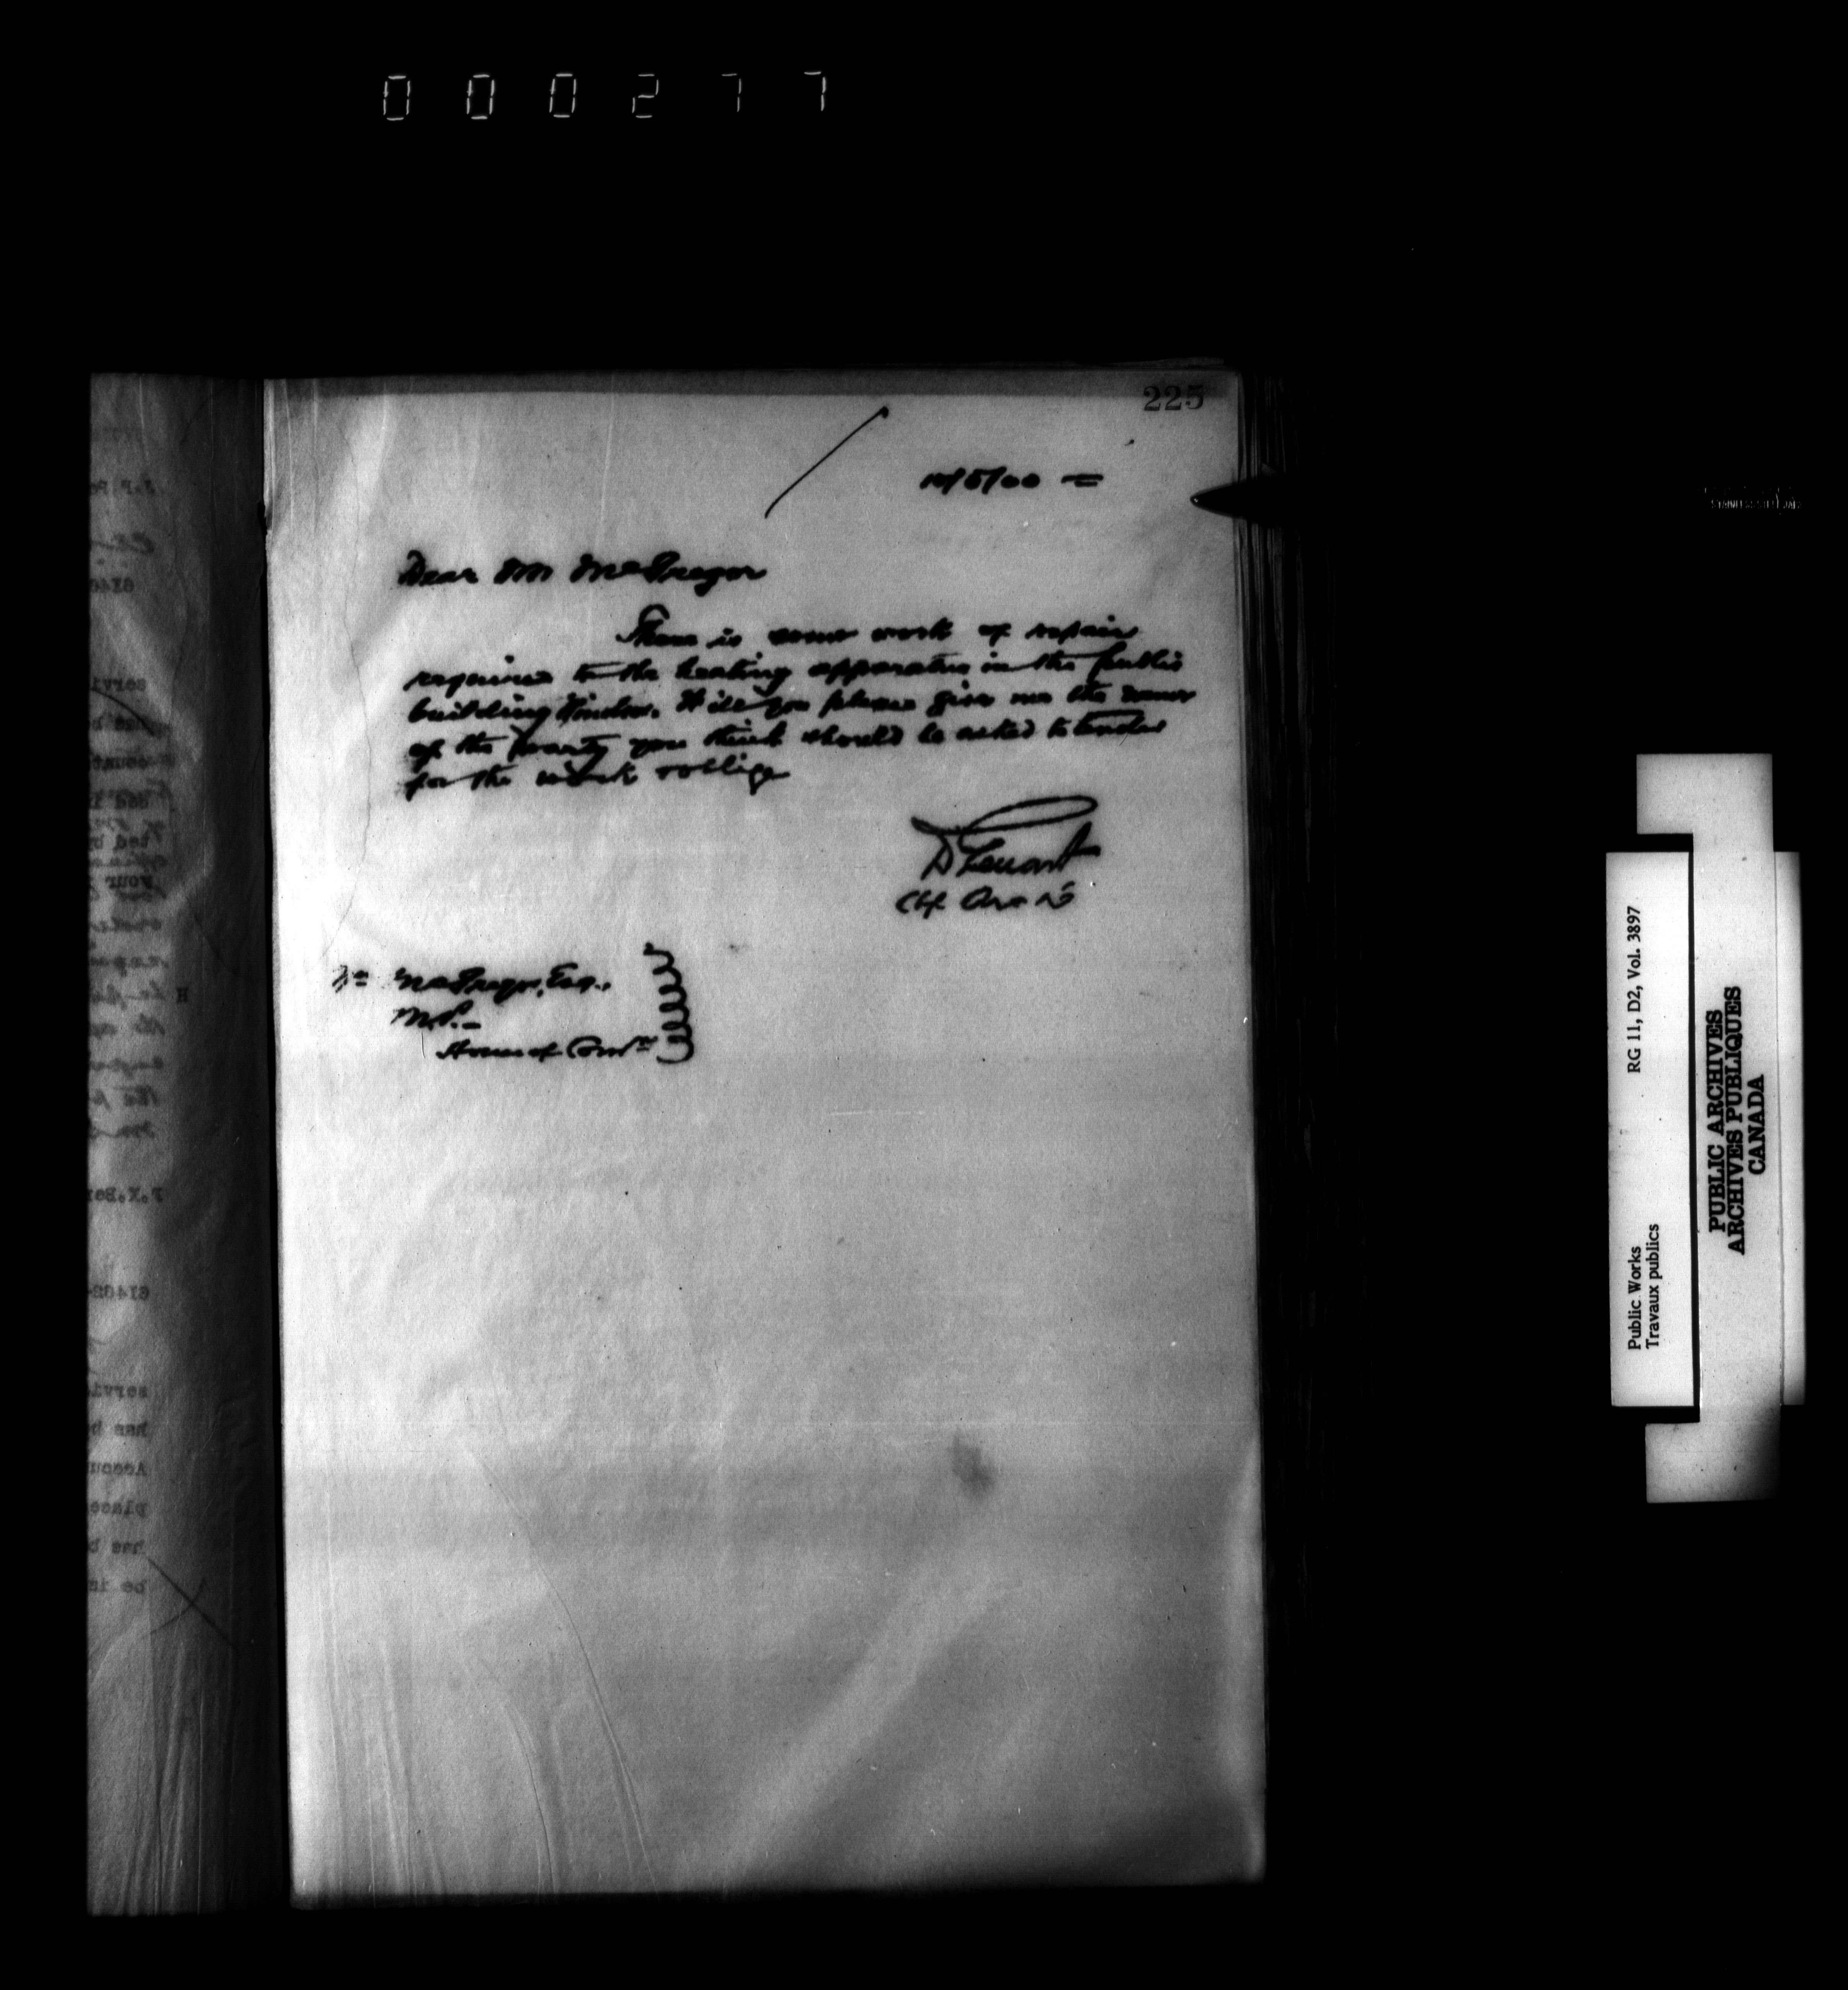 000277
225
10/5/00 =
Dear Mr McGregor
There is some work of repair
required to the heating apparatus in the public
building Windsor. Will you please give me the name
of the party you think should be asked to tender
for the work & oblige
D Ewart
Ch Arch
Wm McGregor, Esq.,
M.P. –
House of Comns
RG 11, D2, Vol. 3897
Public Works
Travaux publics
PUBLIC ARCHIVES
ARCHIVES PUBLIQUES
CANADA